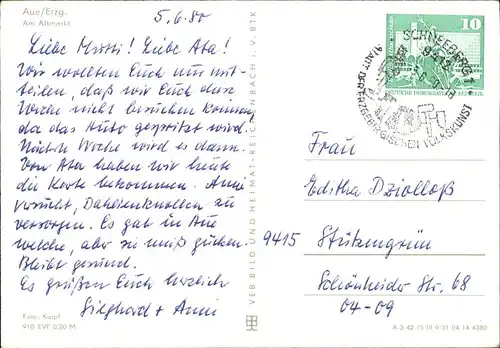 Aue/Erzg.
Am Altmarkt
5.6.80
Liebe Mutti! Liebe Ata!
Wir wollten Euch nur mit-
teilen, daß wir Euch diese
Woche nicht besuchen können,
da das Auto gespritzt wird.
Nächste Woche wird es dann.
Von Ata haben wir heute
die Karte bekommen. Anni
versucht, Dahlienknollen zu
versorgen. Es gab in Aue
welche, aber sie muß gucken.
Bleibt gesund.
Es grüßen Euch herzlich
Sieghard + Anni
Foto: Karpf
910 EVP 0,20 M
VEB BILD UND HEIMAT REICHENBACH I. V. BTK
10
DEUTSCHE DEMOKRATISCHE REPUBLIK
SCHNEEBERG 1
9412
STADT DER ERZGEBIRGISCHEN VOLKSKUNST
Frau
Editha Dzialloß
9415 Stützengrün
Schönheider Str. 68
04-09
A 3-42-75 III 9-31 04 14 4380